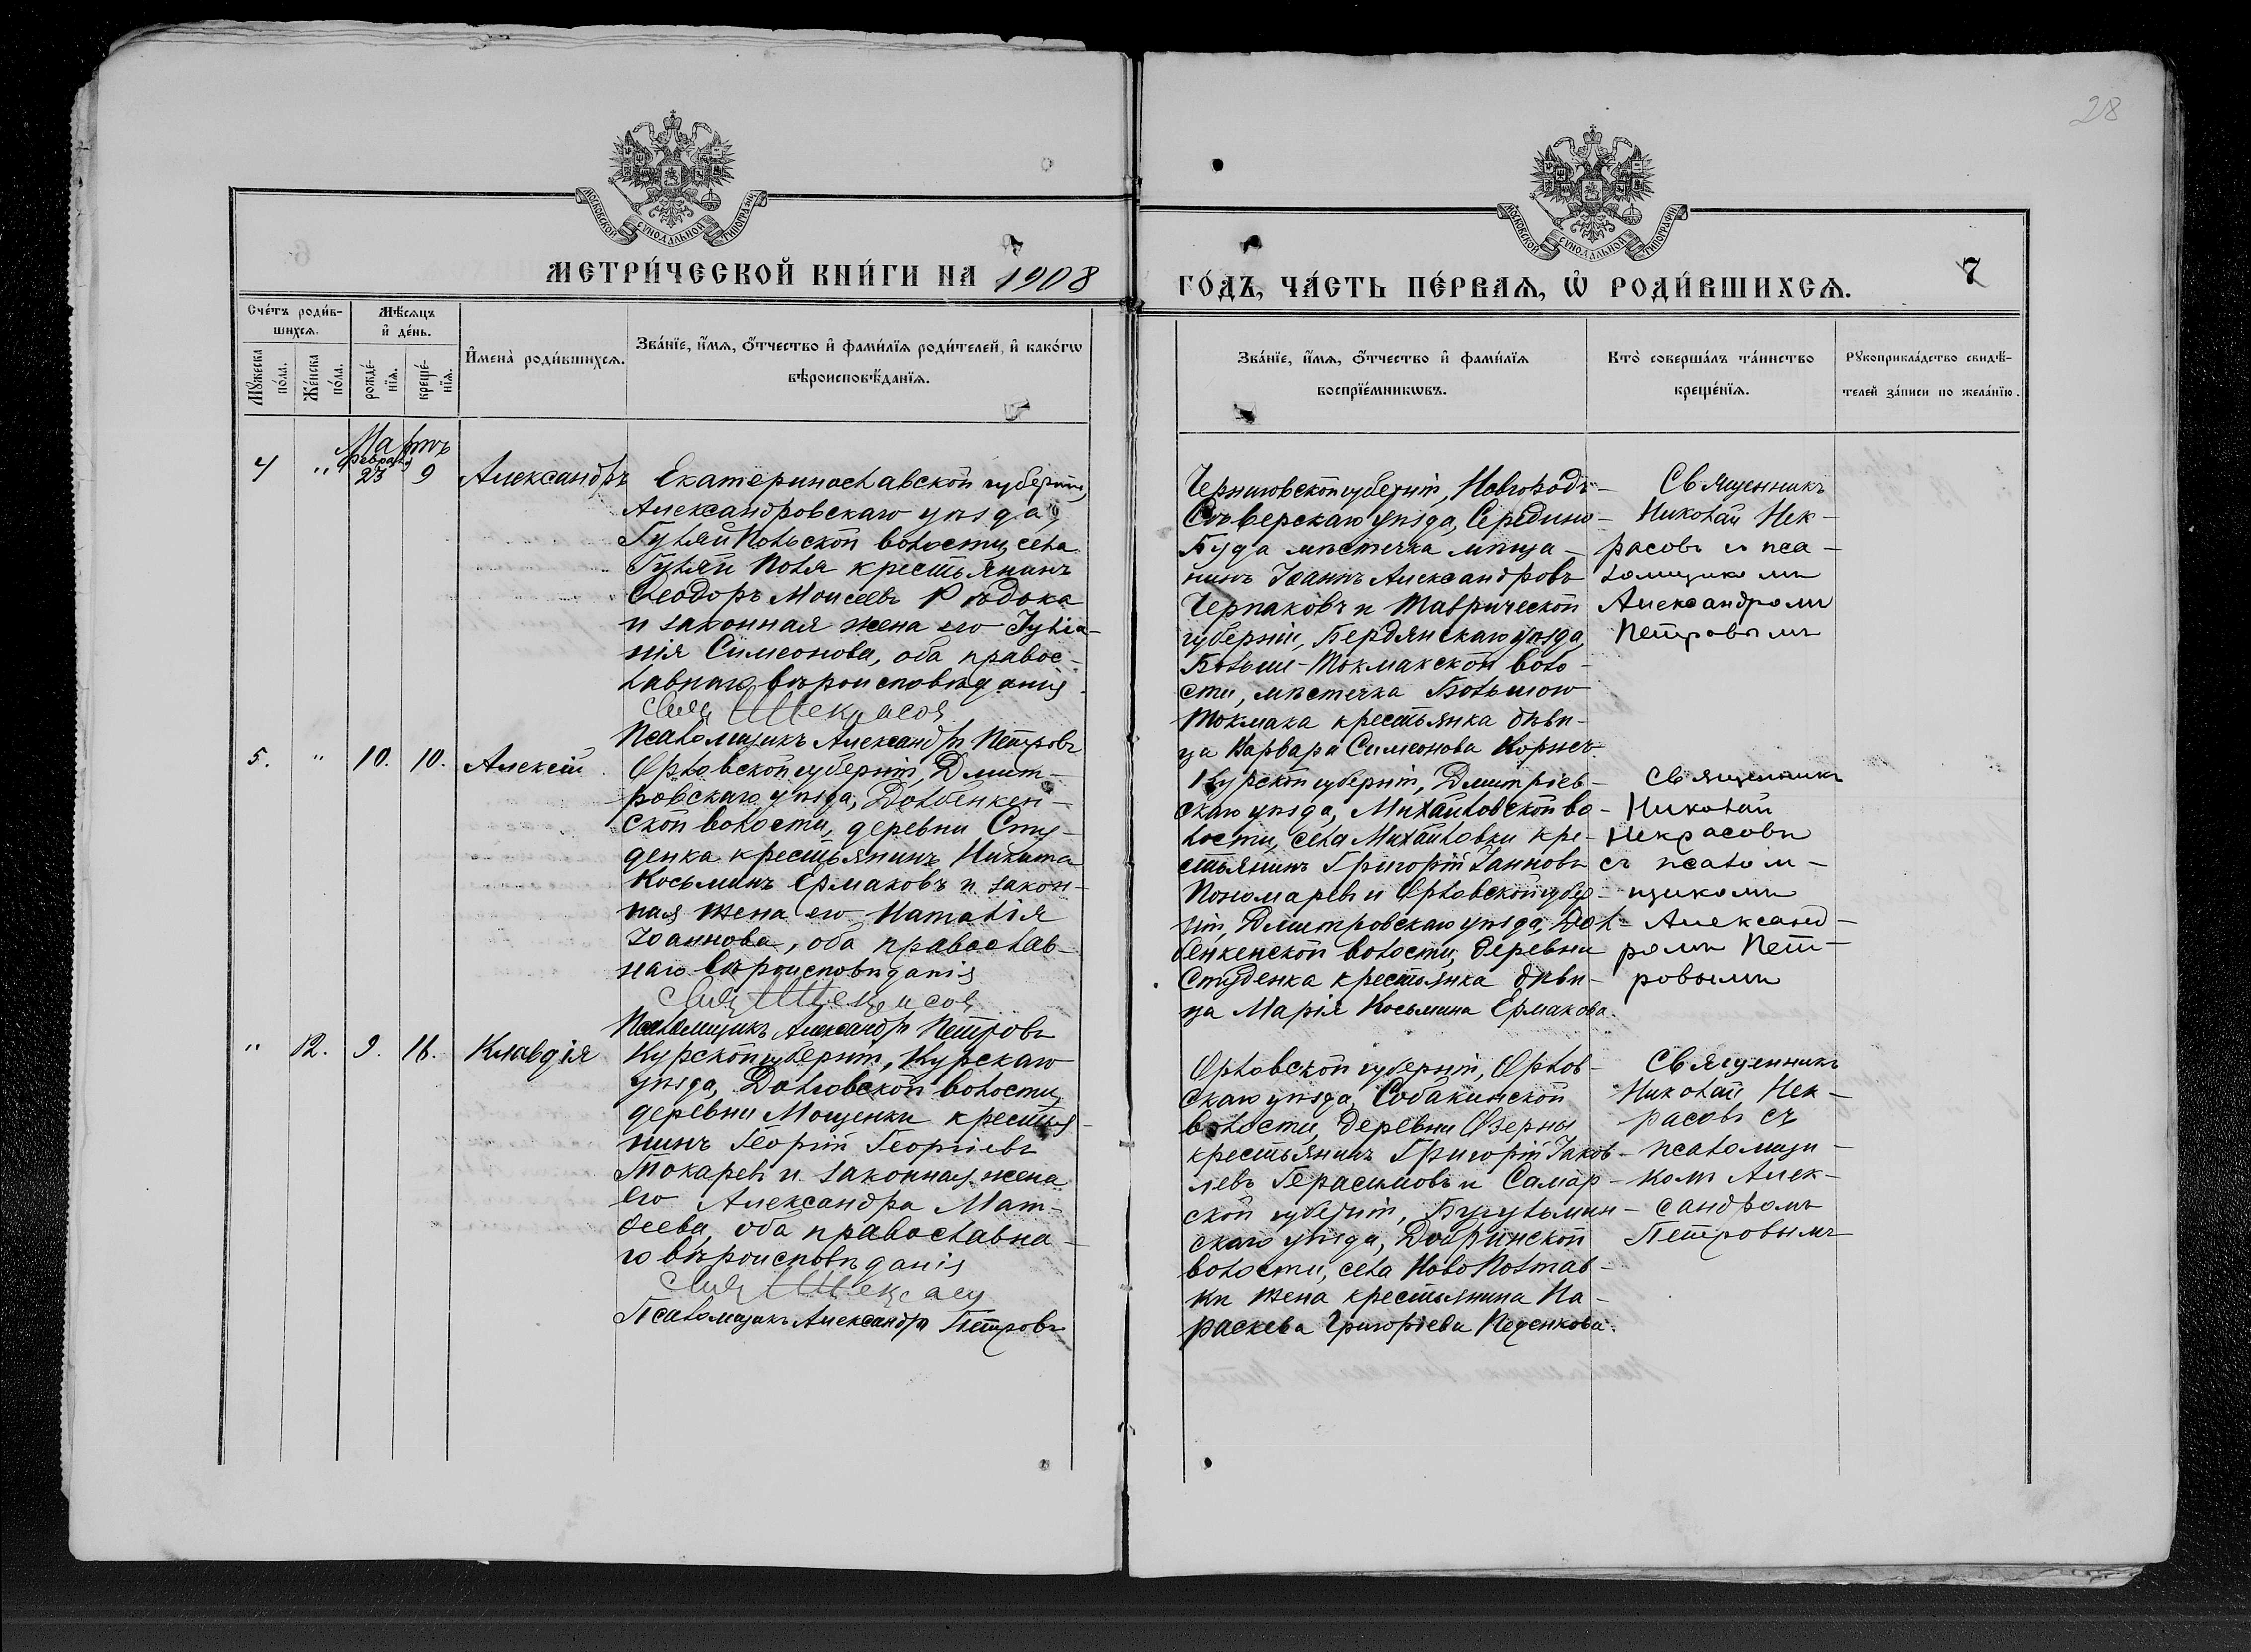 28
МОСКОВСКОЙ СѴНОДАЛЬНОЙ ТИПОГРАФІИ
МЕТРИ́ЧЕСКОЙ КНИ́ГИ НА 1908
Сче́тъ роди́в-
шихсѧ.
Мѣ́сѧцъ
и҆ де́нь.
Мꙋ́жеска
по́ла.
Же́нска
по́ла.
рожде́-
нїѧ.
креще́-
нїѧ.
И҆мена̀ роди́вшихсѧ.
Зва́нїе, и҆́мѧ, ѻ҆́тчество и҆ фами́лїѧ роди́телей, и҆ како́гѡ
вѣроисповѣ́данїѧ.
Мартъ
Февраль
4 " 23 9 Александръ
Екатеринославской губерніи,
Александровскаго уѣзда,
Гуляйпольской волости, села
Гуляй Поля крестьянинъ
Ѳеодоръ Моисеевъ Рѣдька
и законная жена его Іулiа-
нія Симеонова, оба правос-
лавнаго вѣроисповѣданія.
Свящ. Некрасов
Псаломщикъ Александръ Петровъ
5. " 10. 10. Алексій
Орловской губерніи, Дмит-
ровскаго уѣзда, Долбенкен-
ской волости, деревни Сту-
денка крестьянинъ Никита
Косьминъ Ермаковъ и закон-
ная жена его Наталія
Іоаннова, оба православ-
наго вѣроисповѣданія
Свящ. Некрасов
Псаломщикъ Александръ Петровъ
" 12. 9. 16. Клавдія
Курской губерніи, Курскаго
уѣзда, Долговской волости,
деревни Мощенки крестья-
нинъ Георгій Георгіевъ
Токаревъ и законная жена
его Александра Мат-
ѳеева, оба православна-
го вѣроисповѣданія
Свящ. Некрасов
Псаломщикъ Александръ Петровъ
МОСКОВСКОЙ СѴНОДАЛЬНОЙ ТИПОГРАФІИ
ГО́ДЪ, ЧА́СТЬ ПЕ́РВАѦ, Ѽ РОДИ́ВШИХСѦ.
7
Зва́нїе, и҆́мѧ, ѻ҆́тчество и҆ фами́лїѧ
воспрїе́мникѡвъ.
Кто̀ соверша́лъ та́инство
креще́нїѧ.
Рꙋкоприкла́дство свидѣ́-
телей за́писи по жела́нїю.
Черниговской губерніи, Новгородъ-
Сѣверскаго уѣзда, Середино-
Буда мѣстечка мѣща-
нинъ Іоаннъ Александровъ
Черпаковъ и Таврической
губерніи, Бердянскаго уѣзда,
Больше-Токмакской воло-
сти, мѣстечка Большого
Токмака крестьянка дѣви-
ца Варвара Симеонова Корнес
Священникъ
Николай Нек-
расовъ и пса-
ломщикомъ
Александромъ
Петровымъ
Курской губерніи, Дмитріев-
скаго уѣзда, Михайловской во-
лости, села Михайловки кре-
стьянинъ Григорій Іанновъ
Пономаревъ и Орловской губер-
ніи, Дмитровскаго уѣзда, Дол-
бенкенской волости, деревни
Студенка крестьянка дѣви-
ца Марія Косьмина Ермакова.
Священникъ
Николай
Некрасовъ
съ псалом-
щикомъ
Александ-
ромъ Пет-
ровымъ
Орловской губерніи, Орлов-
скаго уѣзда, Собакинской
волости, деревни Озерны
крестьянинъ Григорій Іаков-
левъ Герасимовъ и Самар-
ской губерніи, Бугульмин-
скаго уѣзда, Добринской
волости, села Новополтав-
ки жена крестьянина Па-
раскева Григоріева Педенкова.
Священникъ
Николай Нек-
расовъ съ
псаломщи-
комъ Алек-
сандромъ
Петровымъ